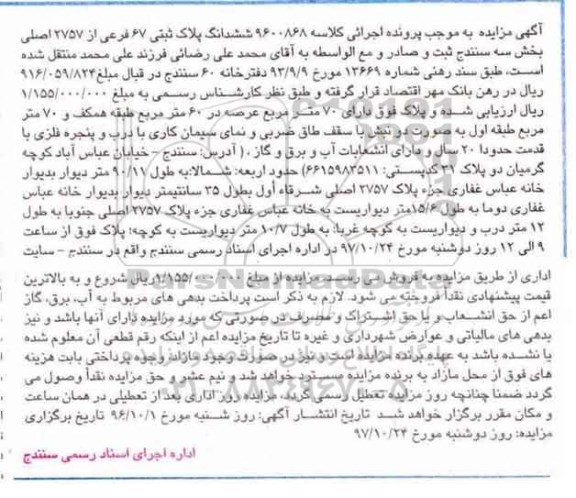 آگهی مزایده به موجب پرونده اجرائی کلاسه ۹۶۰۰۸۶۸ ششدانگ پلاک ثبتی ۶۷ فرعی از ۲۷۵۷ اصلی
بخش سه سنندج ثبت و صادر و مع الواسطه به آقای محمد علی رضائی فرزند علی محمد منتقل شده
است، طبق سند رهنی شماره ۱۳۶۶۹ مورخ ۹۳/۹/۹ دفترخانه ۶۰ سنندج در قبال مبلغ ۹۱۶/۰۵۹/۸۲۴
ریال در رهن بانک مهر اقتصاد قرار گرفته و طبق نظر کارشناس رسمی به مبلغ ۱/۱۵۵/۰۰۰/۰۰۰
ریال ارزیابی شده و پلاک فوق دارای ۷۰ متر مربع عرصه در ۶۰ متر مربع طبقه همکف و ۷۰ متر
مربع طبقه اول به صورت دو نبش با سقف طاق ضربی و نمای سیمان کاری با درب و پنجره فلزی با
قدمت حدودا ۲۰ سال و دارای انشعابات آب و برق و گاز ، ( آدرس: سنندج - خیابان عباس آباد کوچه
گرمیان دو پلاک ۳۱ کدپستی: ۶۶۱۵۹۸۳۵۱۱) حدود اربعه: شمالا:به طول ۹۰/۱۱ متر دیوار بدیوار
خانه عباس غفاری جزء پلاک ۲۷۵۷ اصلی شرقاه أول بطول ۳۵ سانتیمتر دیوار بدیوار خانه عباس
غفاری دوما به طول ۱۵/۶متر دیواریست به خانه عباس غفاری جزء پلاک ۲۷۵۷ اصلی جنوبا به طول
۱۲ متر درب و دیواریست به کوچه غربا: به طول ۱۰/۷ متر دیواریست به کوچه؛ پلاک فوق از ساعت
۹ الی ۱۲ روز دوشنبه مورخ ۹۷/۱۰/۲۴ در اداره اجرای اسناد رسمی سنندج واقع در سنندج - سایت
اداری از طریق مزایده به فروش می رسد. مزایده از مبلغ ۱/۱۵۵/۰۰۰/۰۰۰ریال شروع و به بالاترین
قیمت پیشنهادی نقداً فروخته می شود. لازم به ذکر است پرداخت بدهی های مربوط به آب، برق، گاز
اعم از حق انشعاب و یا حق اشتراک و مصرف در صورتی که مورد مزایده دارای آنها باشد و نیز
بدهی های مالیاتی و عوارض شهرداری و غیره تا تاریخ مزایده اعم از اینکه رقم قطعی آن معلوم شده
یا نشده باشد به عهده برنده مزایده است و نیز در صورت وجود مازاد، وجوه پرداختی بابت هزینه
های فوق از محل مازاد به برنده مزایده مسترد خواهد شد و نیم عشر و حق مزایده نقداً وصول می
گردد ضمنا چنانچه روز مزایده تعطیل رسمی گردد، مزایده روز اداری بعد از تعطیلی در همان ساعت
و مکان مقرر برگزار خواهد شد تاریخ انتشار آگهی: روز شنبه مورخ ۹۶/۱۰/۱ تاریخ برگزاری
مزایده: روز دوشنبه مورخ ۹۷/۱۰/۲۴
اداره اجرای اسناد رسمی سنندج
ParsNamadData
۰۲۱-۸۸۳۴۹۶۷۰-۵